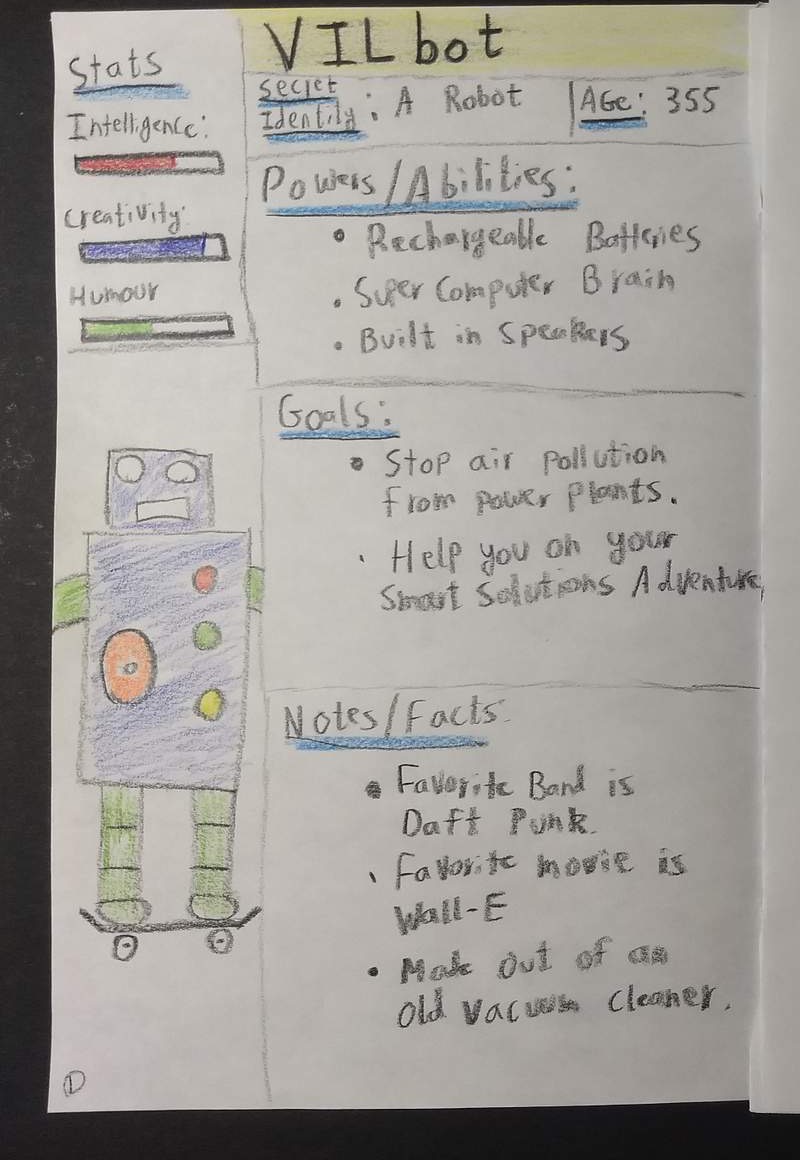 VILbot
Stats
Intelligence:
Creativity:
Humour
Secret
Identity: A Robot
Age: 355
Powers/Abilities:
• Rechargeable Batteries
• Super Computer Brain
• Built in Speakers
Goals:
• Stop air pollution
from power plants.
• Help you on your
Smart Solutions Adventure,
Notes/Facts:
• Favorite Band is
Daft Punk.
• Favorite movie is
Wall-E
• Made out of an
old vacuum cleaner.
1